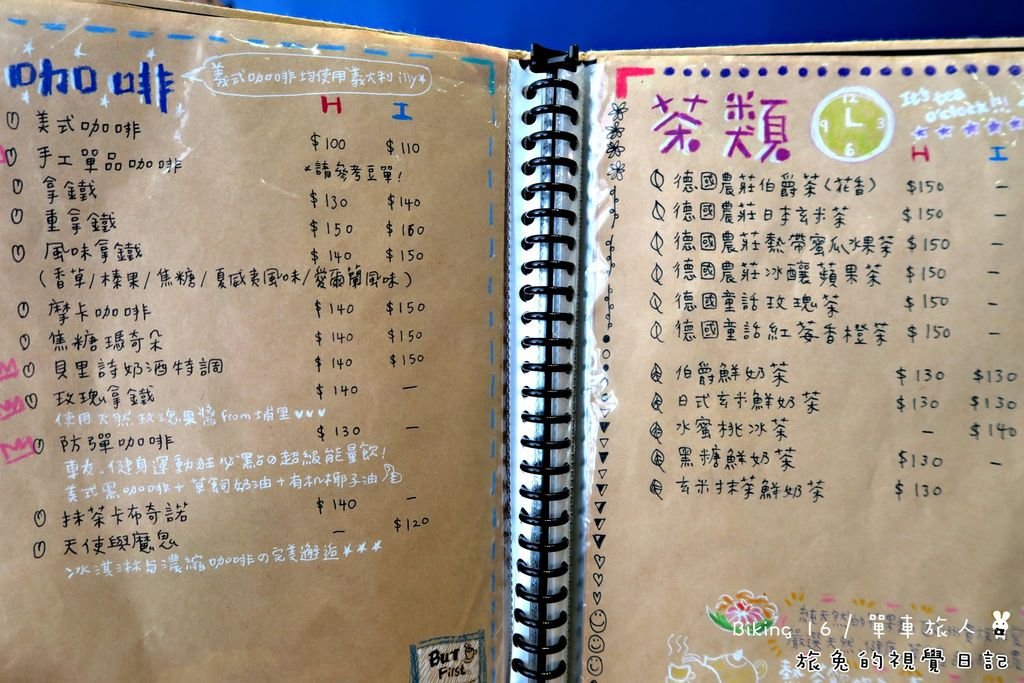 咖啡
義式咖啡均使用義大利illy★
H I
美式咖啡 $100 $110
手工單品咖啡 *請參考豆單!
拿鐵 $130 $140
重拿鐵 $150 $160
風味拿鐵 $140 $150
(香草/榛果/焦糖/夏威夷風味/愛爾蘭風味)
摩卡咖啡 $140 $150
焦糖瑪奇朵 $140 $150
貝里詩奶酒特調 $140 $150
玫瑰拿鐵 $140 —
使用天然玫瑰果醬from埔里♥♥♥
防彈咖啡 $130 —
車友.健身運動狂必點の超級能量飲!
美式黑咖啡+草飼奶油+有机椰子油
抹茶卡布奇諾 $140 —
天使與魔鬼 — $120
冰淇淋与濃縮咖啡の完美邂逅★★★
But First
茶類
12 3 6 9
It's tea o'clock!!
H I
德國農莊伯爵茶(花香) $150 —
德國農莊日本玄米茶 $150 —
德國農莊熱帶蜜瓜水果茶 $150 —
德國農莊冰釀蘋果茶 $150 —
德國童話玫瑰茶 $150 —
德國童話紅莓香橙茶 $150 —
伯爵鮮奶茶 $130 $130
日式玄米鮮奶茶 $130 $130
水蜜桃冰茶 — $140
黑糖鮮奶茶 $130 —
玄米抹茶鮮奶茶 $130
純天然的
Biking 16 / 單車旅人
旅兔的視覺日記